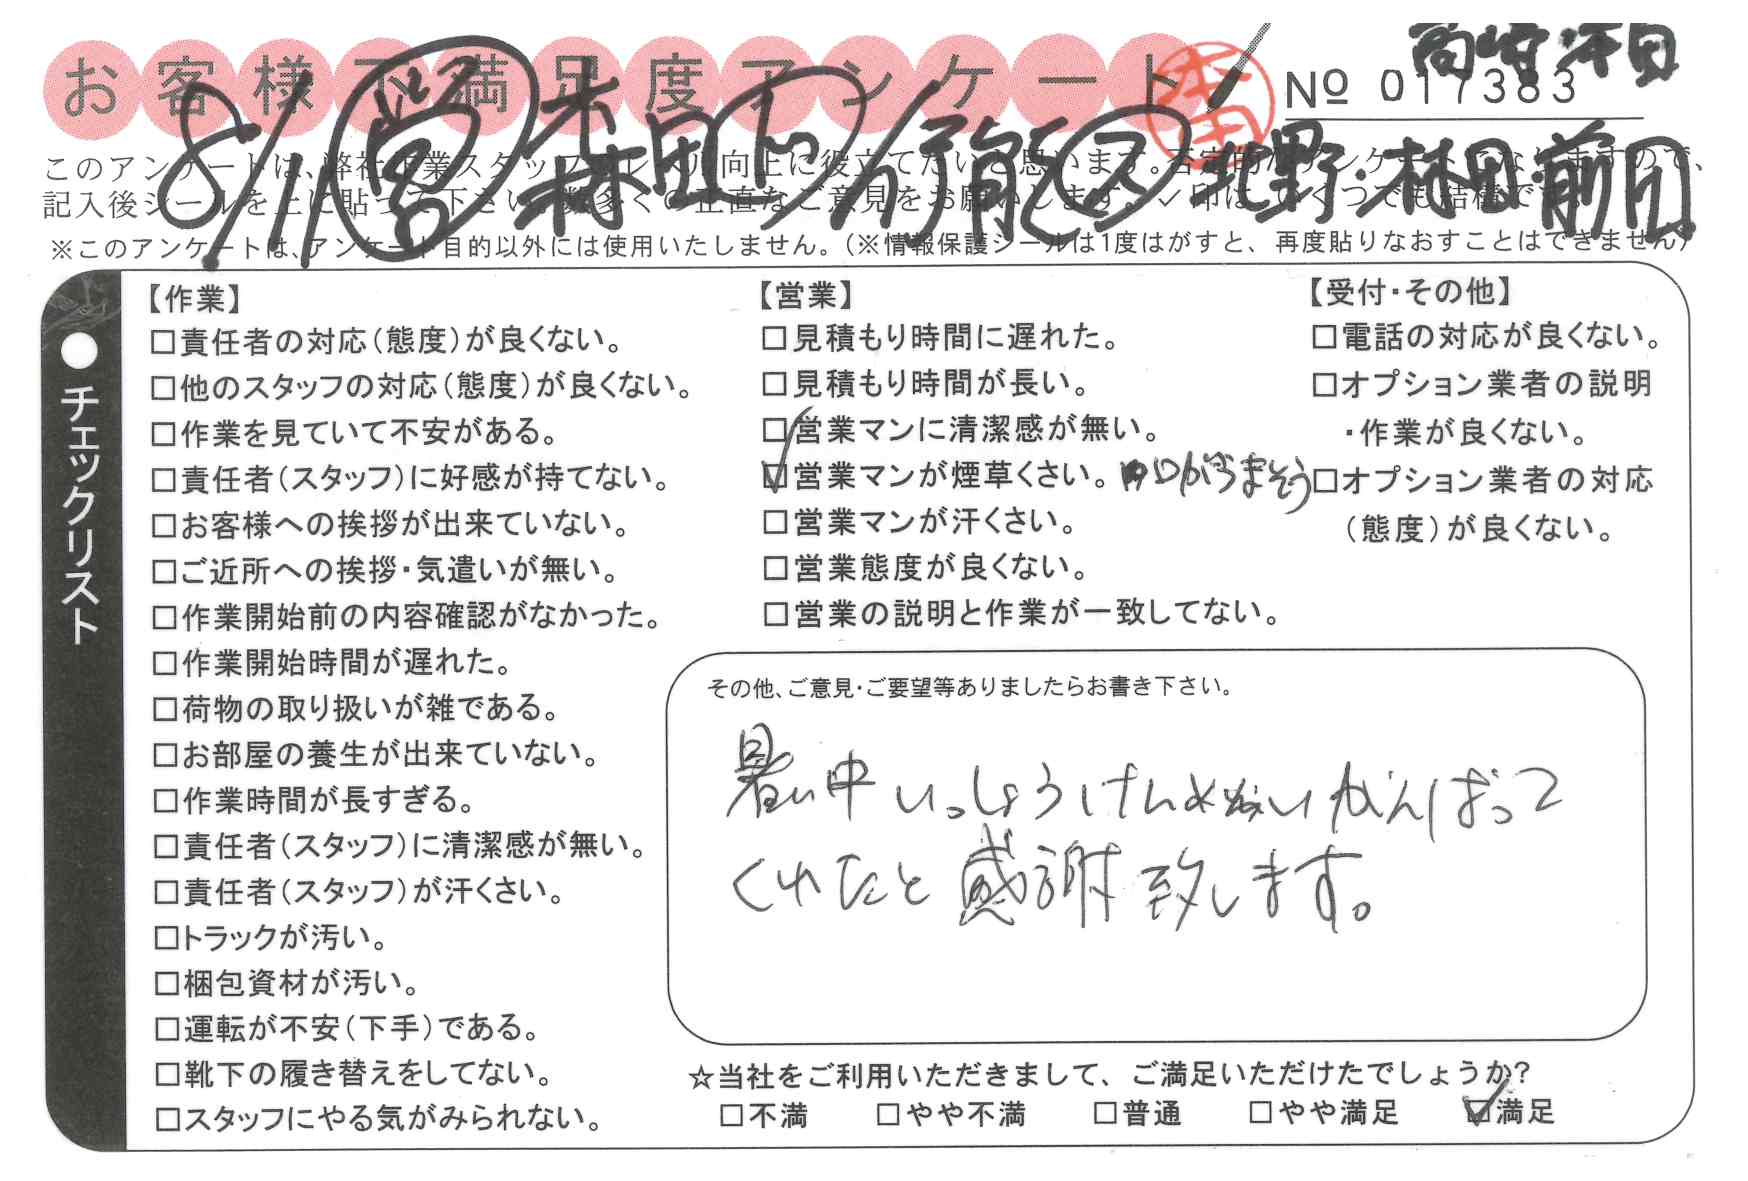 お客様不満足度アンケート
高崎・本田
No 017383
8/1 営 森田 ト 1/前 ス 星野・林田 前田
このアンケートは、弊社作業スタッフのレベル向上に役立てたいと思います。否定的なアンケートになりますので、
記入後シールを上に貼って下さい。数多くの正直なご意見をお願いします。✓印は、いくつでも結構です。
※このアンケートは、アンケート目的以外には使用いたしません。(※情報保護シールは1度はがすと、再度貼りなおすことはできません)
●チェックリスト
【作業】
□責任者の対応(態度)が良くない。
□他のスタッフの対応(態度)が良くない。
□作業を見ていて不安がある。
□責任者(スタッフ)に好感が持てない。
□お客様への挨拶が出来ていない。
□ご近所への挨拶・気遣いが無い。
□作業開始前の内容確認がなかった。
□作業開始時間が遅れた。
□荷物の取り扱いが雑である。
□お部屋の養生が出来ていない。
□作業時間が長すぎる。
□責任者(スタッフ)に清潔感が無い。
□責任者(スタッフ)が汗くさい。
□トラックが汚い。
□梱包資材が汚い。
□運転が不安(下手)である。
□靴下の履き替えをしてない。
□スタッフにやる気がみられない。
【営業】
□見積もり時間に遅れた。
□見積もり時間が長い。
□営業マンに清潔感が無い。
☑営業マンが煙草くさい。
□営業マンが汗くさい。
□営業態度が良くない。
□営業の説明と作業が一致してない。
【受付・その他】
□電話の対応が良くない。
□オプション業者の説明
・作業が良くない。
□オプション業者の対応
(態度)が良くない。
その他、ご意見・ご要望等ありましたらお書き下さい。
暑い中いっしょうけんめいがんばって
くれたと感謝致します。
☆当社をご利用いただきまして、ご満足いただけたでしょうか?
□不満 □やや不満 □普通 □やや満足 ☑満足